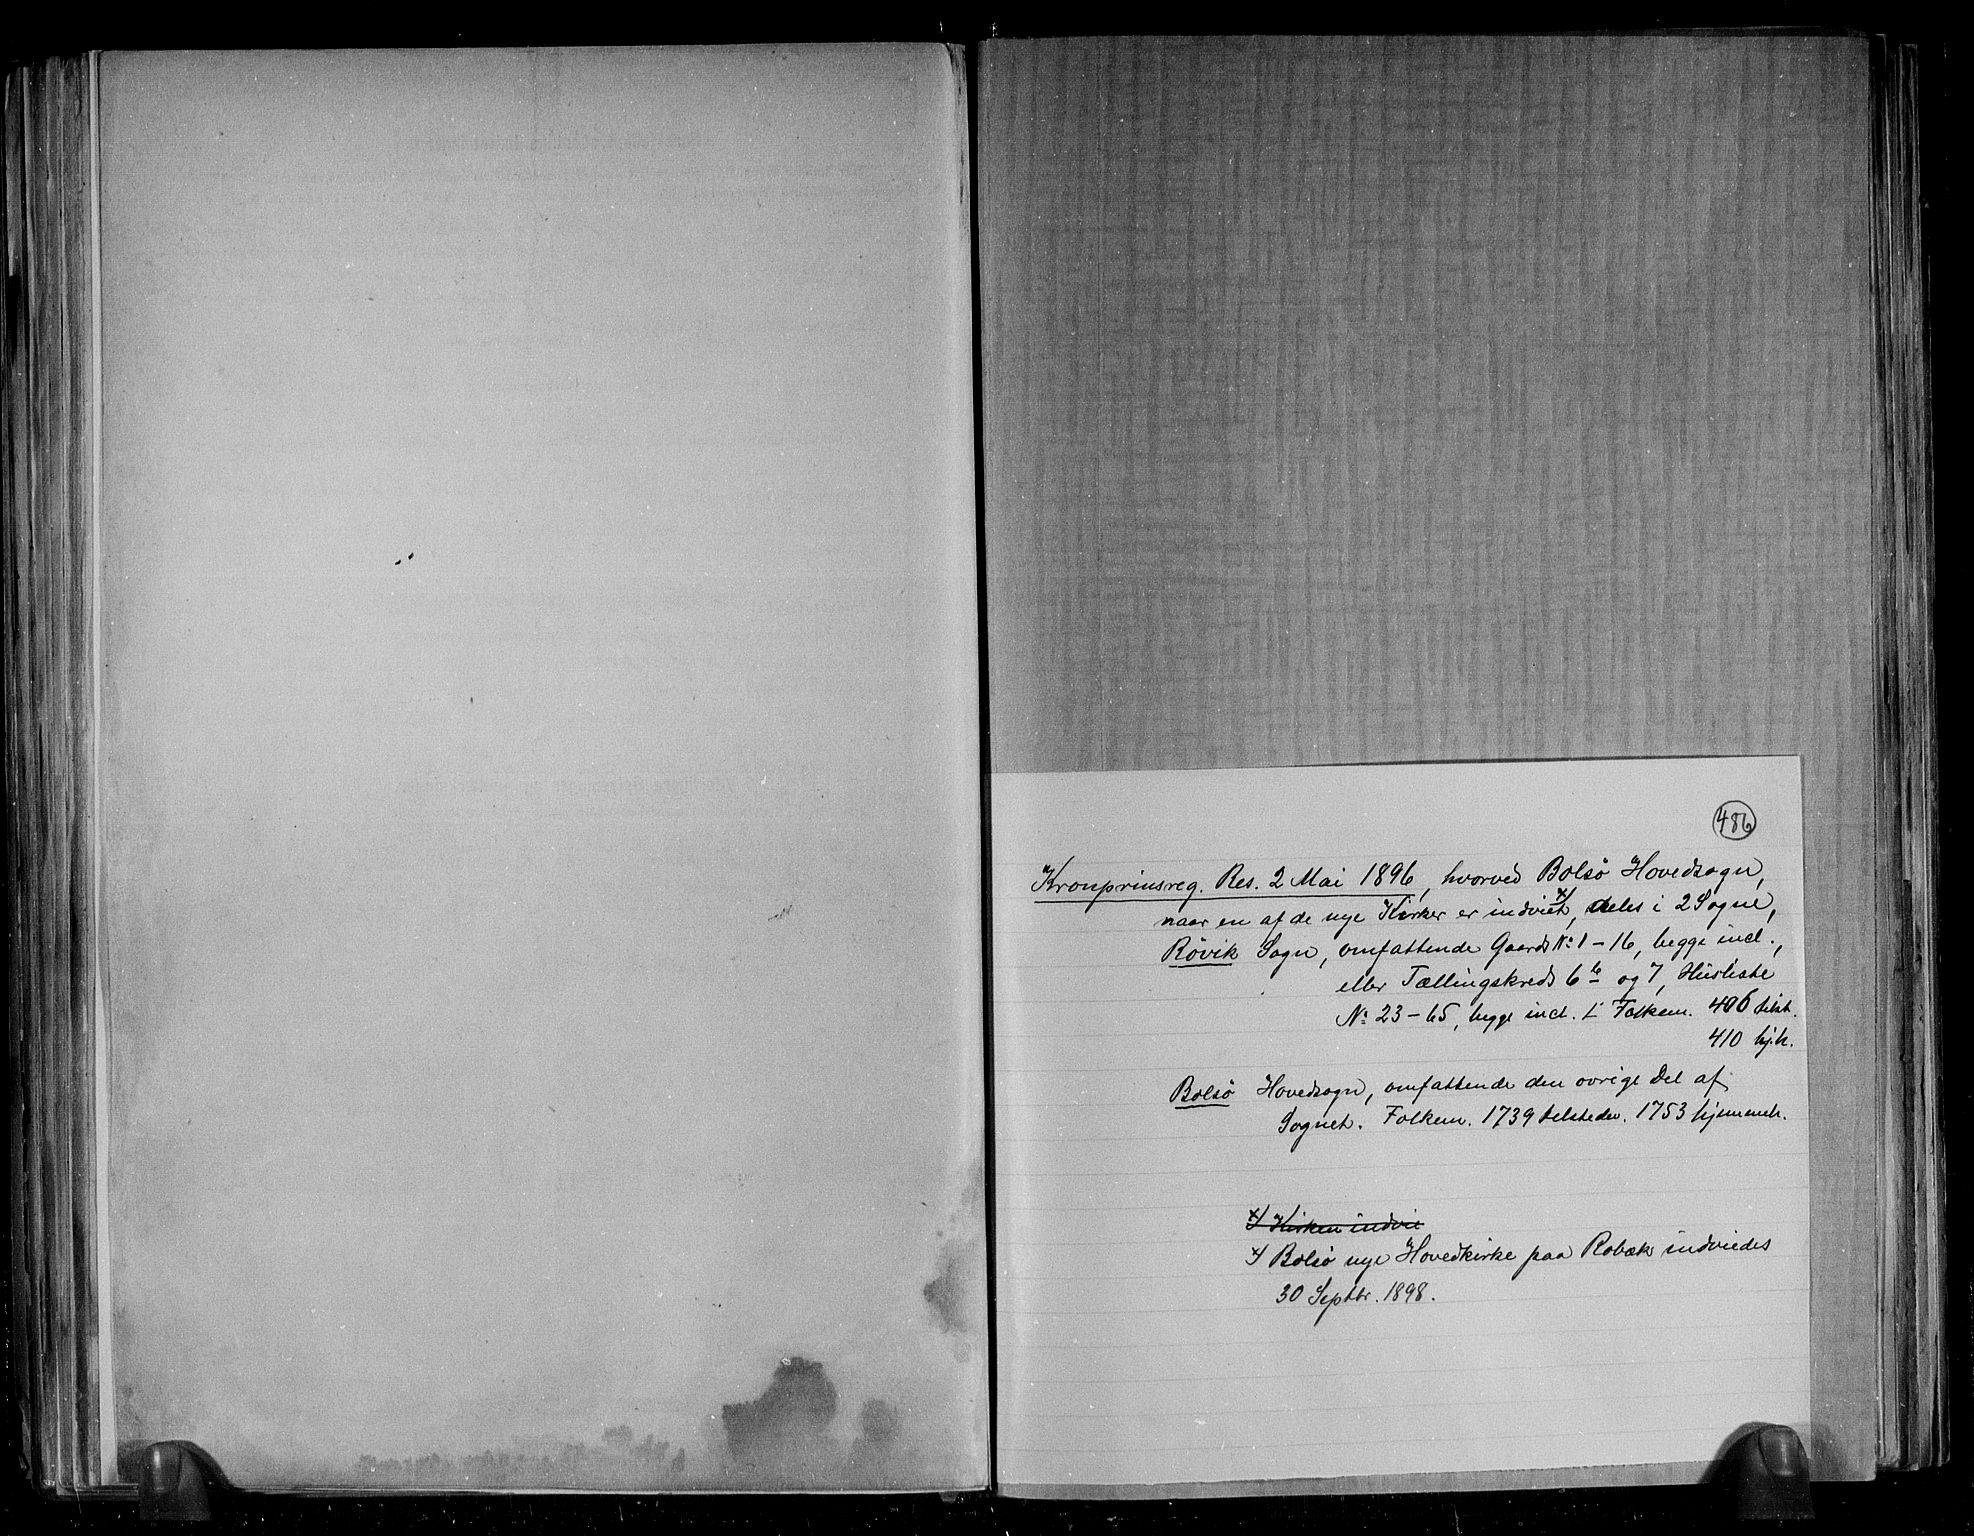 486
Kronprinsreg. Res. 2 Mai 1896, hvorved Bolsö Hovedsogn,
naar en af de nye Kirker er indviet x), deles i 2 Sogne,
Rövik Sogn, omfattende Gaards No 1-16, begge incl.,
eller Tællingskreds 6 b og 7, Husliste
No 23-65, begge incl. Folkem. 406 tilst.
410 hj.h.
Bolsö Hovedsogn, omfattende den ovrige Del af
Sognet. Folkem. 1739 tilstedev. 1753 hjemmeh.
x) Kirken indvie
x) Bolsö nye Hovedkirke paa Robæk indviedes
30 Septbr. 1898.